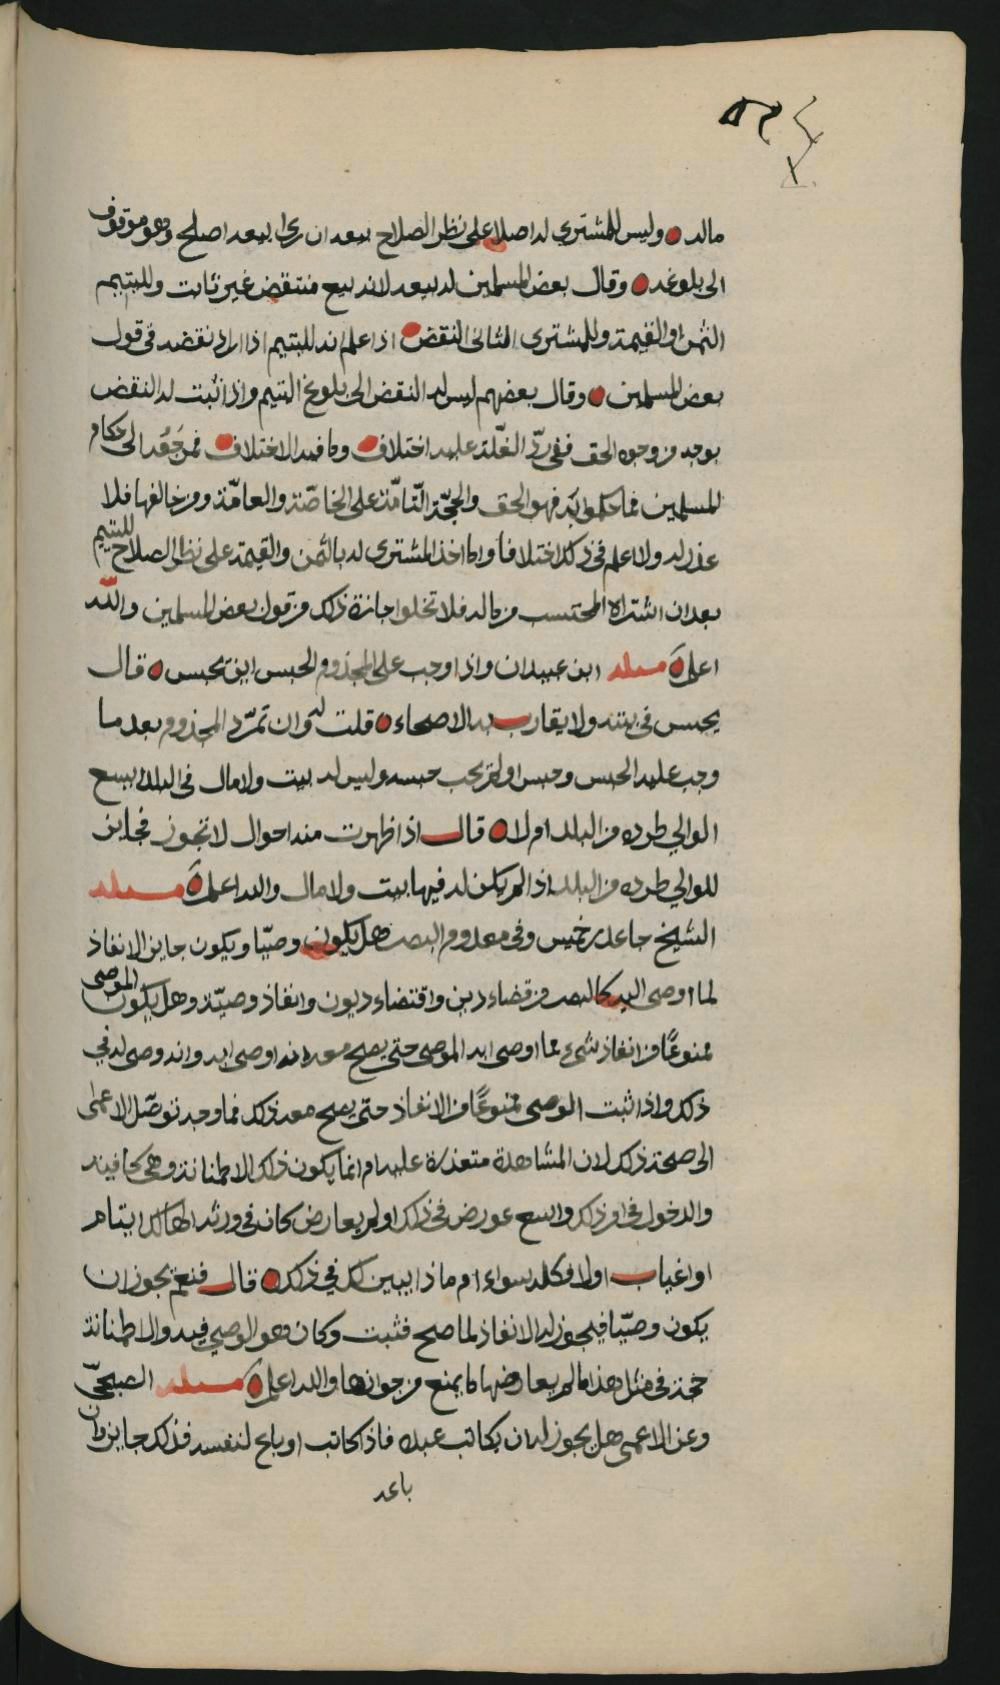 ماله وليس للمشتري له اصلا على نظر الصلاح ببعد ان رءا ببعه اصلح وهو موقوف
الى بلوغه وقال بعض المسلمين له بيعه لانه بيع منتقض غير ثابت ولليتيم
الثمن او القيمة وللمشتري الثاني النقض اذا علم انه لليتيم اذا اراد نقضه في قول
بعض المسلمين وقال بعضهم ليس له النقض الى بلوغ اليتيم واذا ثبت له النقض
بوجه من وجوه الحق ففي ردّ الغلّة عليه اختلاف وما فيه الاختلاف فمرجعه الى حكام
المسلمين فما حكموا به فهو الحق والحجّة التّامّة على الخاصّة والعامّة ومن خالفها فلا
عذر له ولا اعلم في ذلك اختلافا واما اخذ المشتري له بالثمن والقيمة على نظر الصلاح لليتيم
بعد ان اشتراه المحتسب من ماله فلا تخلوا جازة ذلك من قول بعض المسلمين والله
اعلم مسئله ابن عبيدان واذا وجب على المجذوم الحبس اين يحبس قال
يحبس في بيته ولا يقارب به الاصحاء قلت له وان تمرّد المجذوم بعد ما
وجب عليه الحبس وحبس او لم يجب حبسه وليس له بيت ولا مال في البلد ايسع
الوالي طرده من البلد ام لا قال اذا ظهرت منه احوال لا تجوز فجايز
للوالي طرده من البلد اذا لم يكن له فيها بيت ولا مال والله اعلم مسئله
الشيخ جاعد بن خميس وفي معدوم البصر هل يكون وصيّا ويكون جايز الانفاذ
لما اوصى اليه كالبصر من قضاء دين واقتضاء ديون وانفاذ وصيّة وهل يكون الموصى
ممنوعًا من انفاذ شيء مما اوصى به الموصى حتى يصح معه انه اوصى به وانه وصى له في
ذلك واذا ثبت الوصى ممنوعًا من الانفاذ حتى يصح معه ذلك فما وجه توصّل الاعمى
الى صحة ذلك لان المشاهدة متعذرة عليه ام انما يكون ذلك الاطمانة وهي كافية
والدخول في امر ذلك واسع عورض في ذلك او لم يعارض كان في ورثة الهالك ايتام
او اغياب او لا وكله سواء ام ماذا ابين لك في ذلك قال فنعم يجوز ان
يكون وصيّا فيجوز له الانفاذ لما صح فثبت وكان هو الوصي فيه والاطمانة
حجة في مثل هذا ما لم يعارضها ما يمنع من جوازها والله اعلم مسئله الصبحيّ
وعن الاعمى هل يجوز له ان يكاتب عبده فاذا كاتب او باع لنفسه فذلك جايز وان
باعه